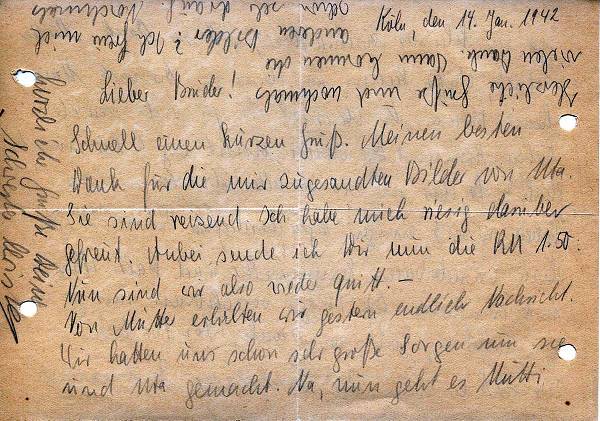 Köln, den 14. Jan. 1942
Lieber Bruder!
Schnell einen kurzen Gruß. Meinen besten
Dank für die mir zugesandten Bilder von Uta.
Sie sind reizend. Ich habe mich riesig darüber
gefreut. Anbei sende ich Dir nun die RM 1.50.
Nun sind wir also wieder quitt. –
Von Mutter erhielten wir gestern endlich Nachricht.
Wir hatten uns schon sehr große Sorgen um sie
und Uta gemacht. Na, nun geht es Mutti
Herzliche Grüße und nochmals
vielen Dank. Wann kommen die
anderen Bilder? Ich freu mich
schon sehr drauf. Nochmals
herzliche Grüße Deine
Schwester